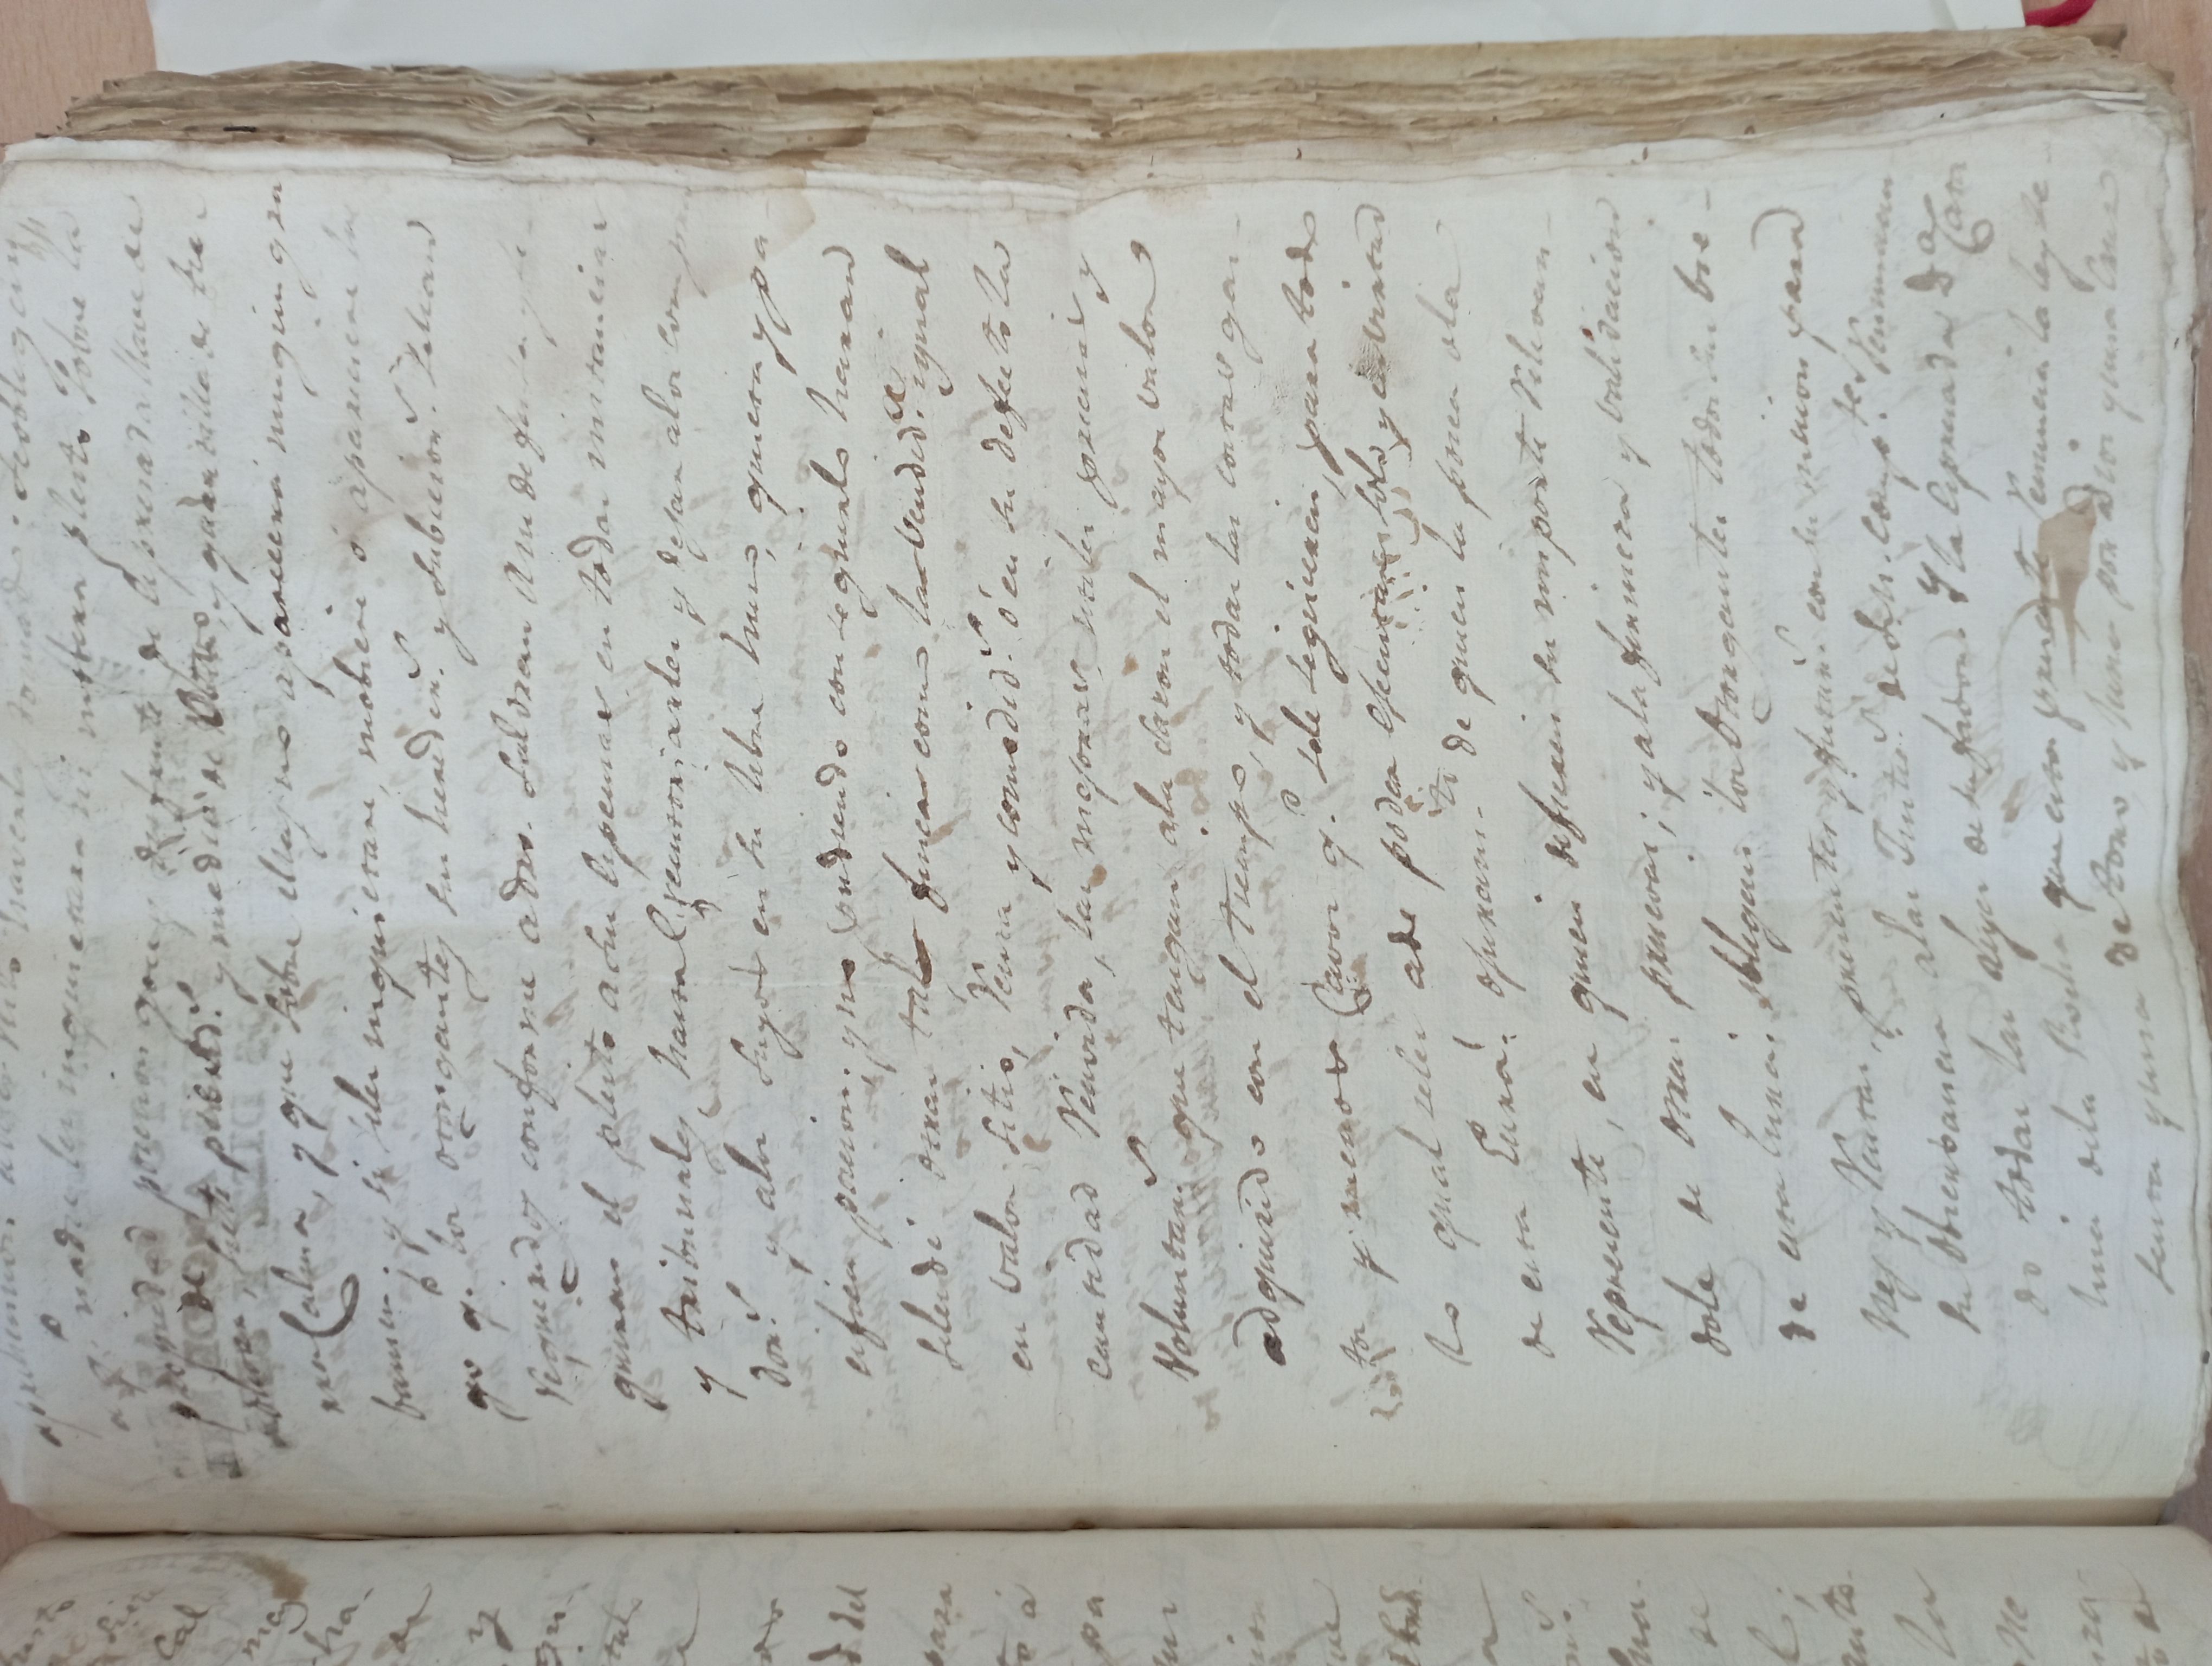 aprehension haverla tomado. Se obligan
a q.e nadie les inquietara ni mobera pleito sobre la
propiedad posecion goce y disfrute de la espresada llave de
ahora, siete y media de y quartilla de tie-
rra Calma, y que sobre ellas no aparecerá ningun gra
bamen; y si seles inquietare, mobiere ó apareciere lue
go q.e los otorgantes sus hereder.s y subcesor.s sehan
requeridos conforme adro. saldran a su defensa y se-
guiran el pleito a sus espensas en todas instancias
y tribunales hasta executoriarles y dejar alos compra
dor.s y alos suyos en su libre huso, quieta y pa-
cifica pocion; y no pudiendo conseguirlo haran
selesdé otras tales fincas como las vendid.as igual
en valor sitio, Renta y comodid.s ó en su defecto la
cantidad Recivida, las mejoras, utiles precisas y
Voluntar.s que tengan ala sazon el mayor valor
adquirido con el tiempo, y todas las costas gas-
tos y menos Cavos q.e sele siguieren, para todo
lo qual seles ade poder executar solo y en virtud
de esta Escra. y juram.to de quien la posea o la
Represente, en quien defieren su importe Relevan-
dole de otras pruevas; y ala firmeza y validacion
de esta Escra. obligan los Otorgantes todos sus bie-
nes y Rentas, presentes y futur.s con sumicion para
su Obserbancia alas Justic.s de S.M. comp.tes Renuncian
do todas las Leyes de su fabor. Y la espresada D.a Caro
lina dela Rocha que esta presente Renuncia la ley se-
senta y una de toro, y jura por Dios y una Cruz